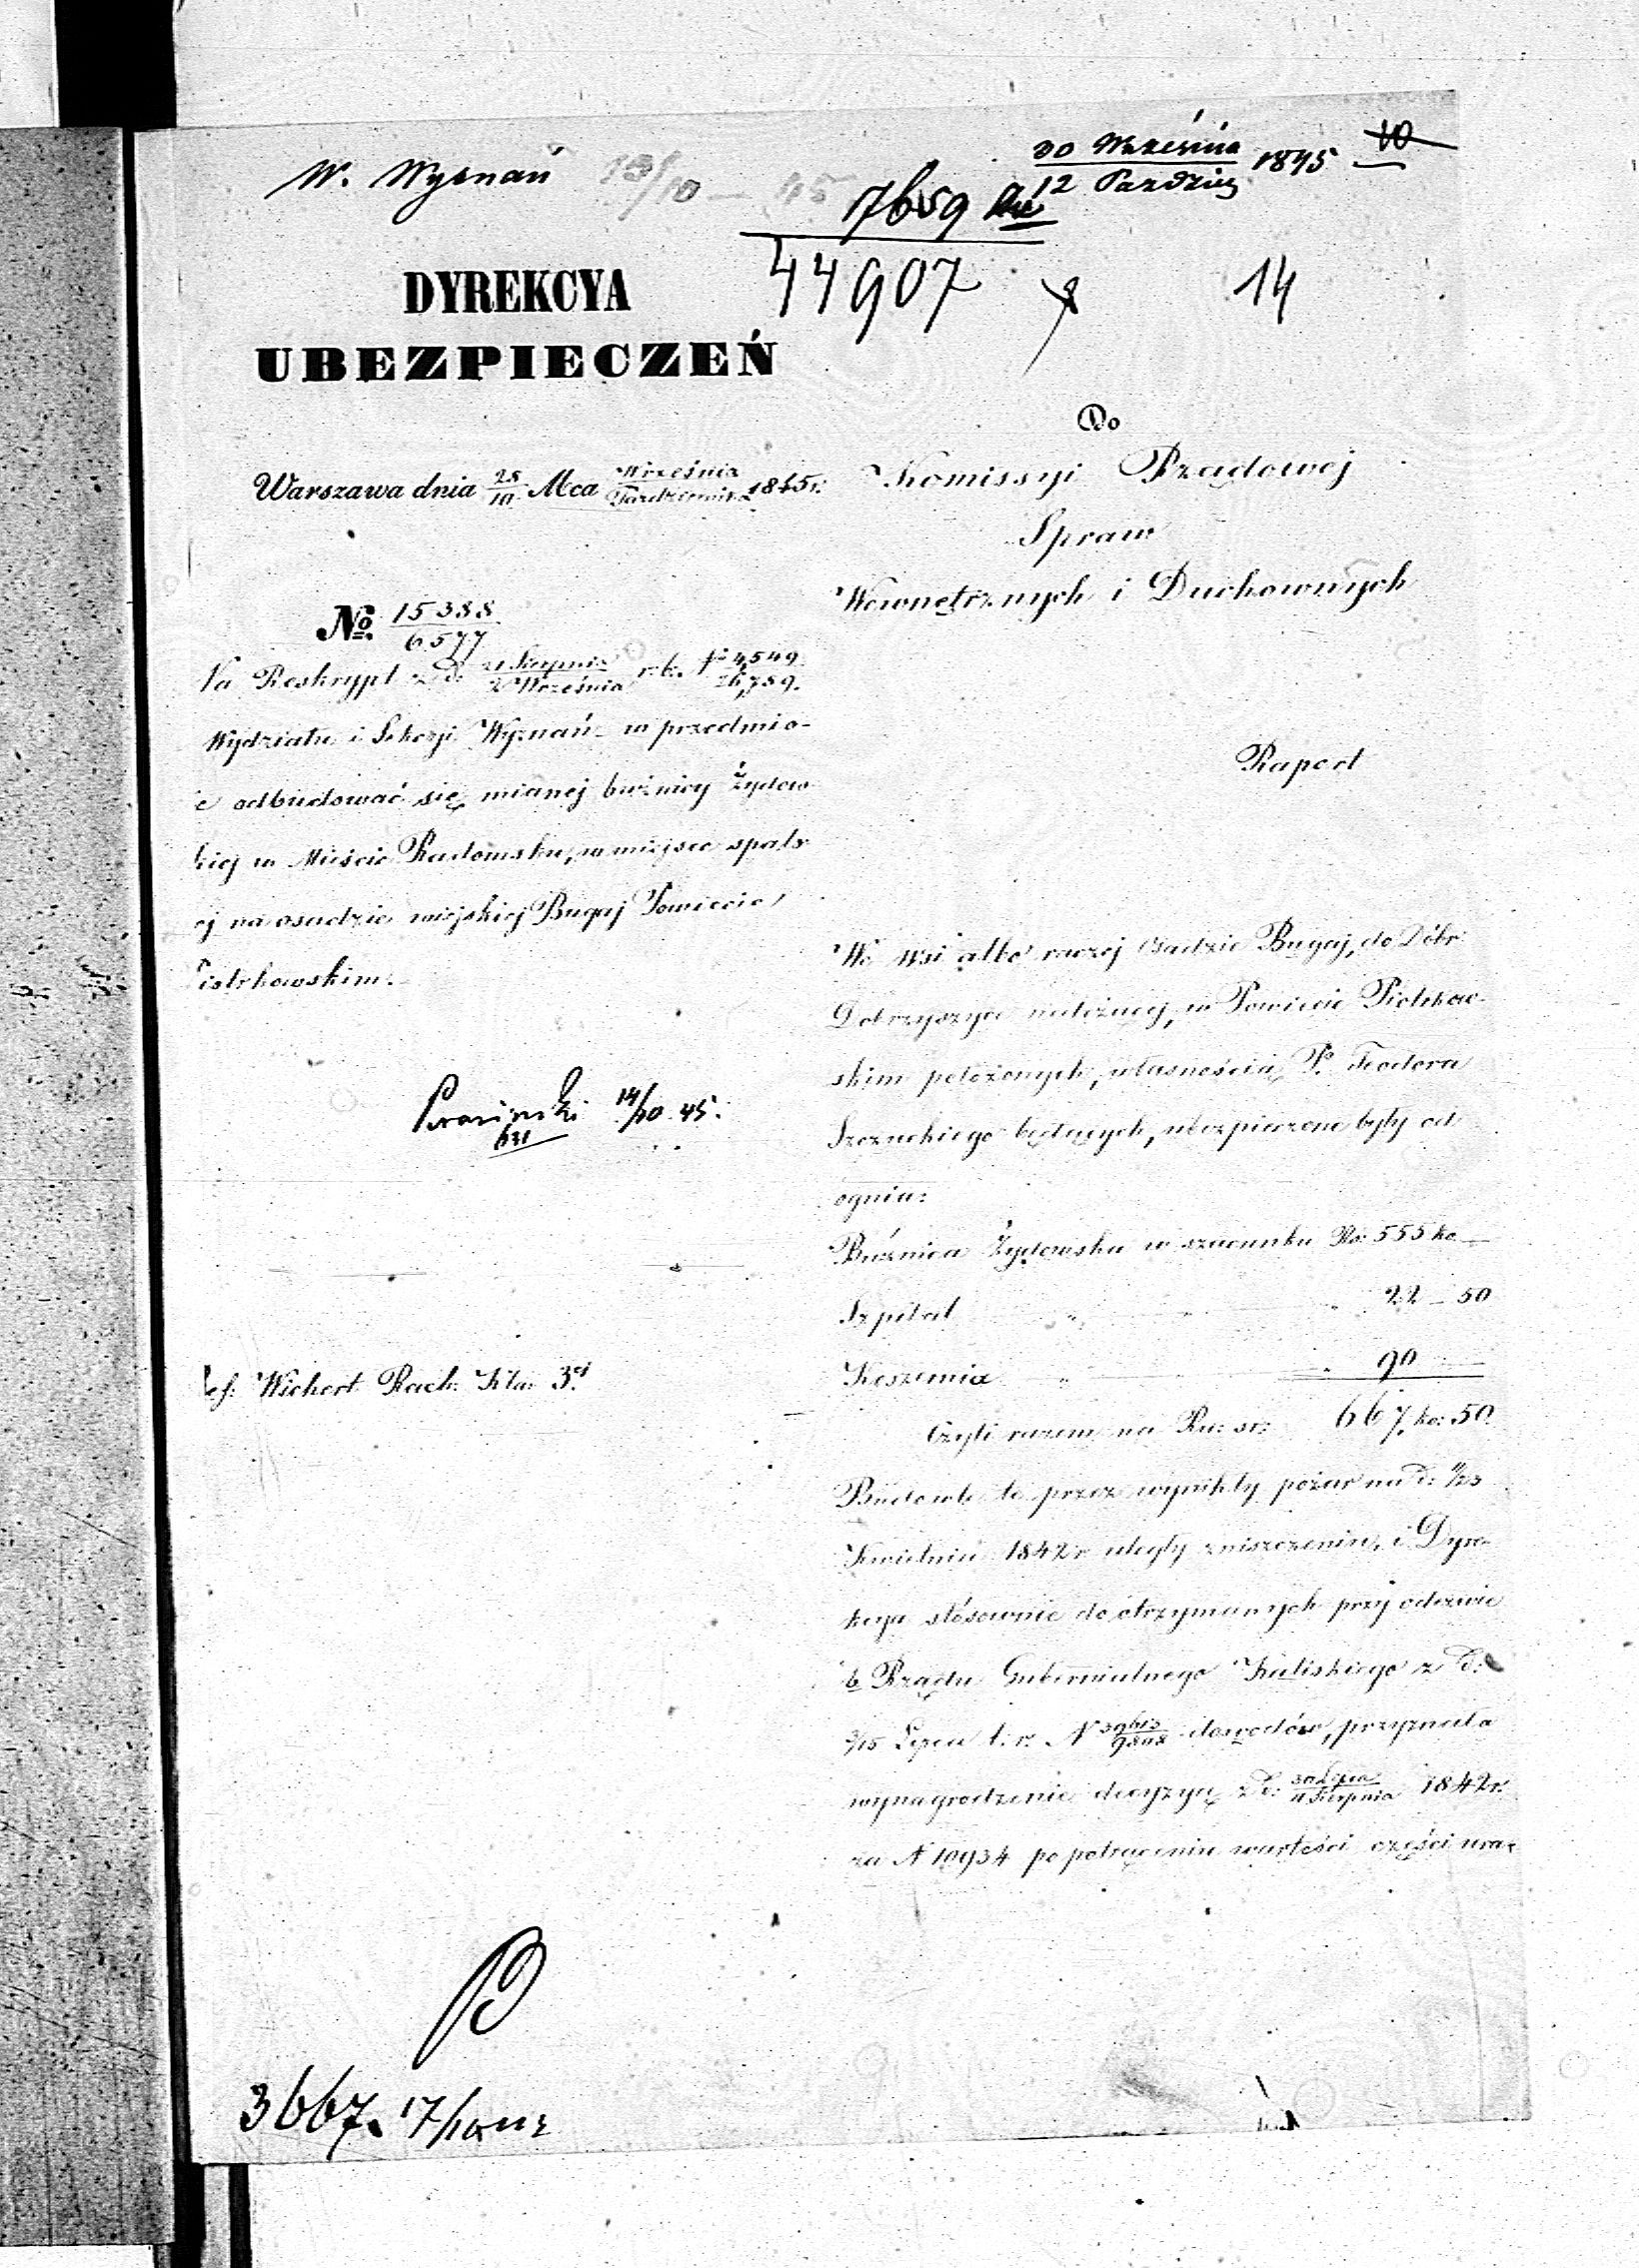 W. Wyznań 13/10 – 45
30 Września 1845
12 Paździer
10
7659
44907
14
DYREKCYA
UBEZPIECZEŃ
Warszawa dnia 28/10 Mca Września/Październik 1845 r.
№ 15388/6577
Na Reskrypt z d. 21 Sierpnia/2 Września r. b. № 4,549/26,789.
Wydziału i Sekcyi Wyznań w przedmio-
e odbudować się mianej bużnicy Żydow-
kiej w Mieście Radomsku, w miejsce spalo-
ej na osadzie wiejskiej Bugaj Powiecie
iotrkowskim.
14/10 45.
ef. Wichert Rach. Kla. 3ej
3667. 17/10
Do
Komissyi Rządowej
Spraw
Wewnętrznych i Duchownych
Raport
We wsi albo raczej Osadzie Bugaj, do Dóbr
Dobryszyce należącej, w Powiecie Piotrkow-
skim położonych, własnością P. Teodora
będących, ubezpieczone były od
ognia:
Bużnica Żydowska w szacunku Rs. 555 ko —
Szpital „ „ 22 – 50
Koszernia „ „ 90 —
Czyli razem na Ru: sr: 667. ko: 50
Budowle te przez wynikły pożar na d: 11/23
Kwietnia 1842 r. uległy zniszczeniu, i Dyre-
kcya stósownie do otrzymanych przy odezwie
b. Rządu Gubernialnego Kaliskiego z d:
3/15 Lipca t. r. N dowodów, przyznała
wynagrodzenie decyzyą z d: 30 Lipca/11 Sierpnia 1842 r.
za N 10934 po potrąceniu wartości części ura-